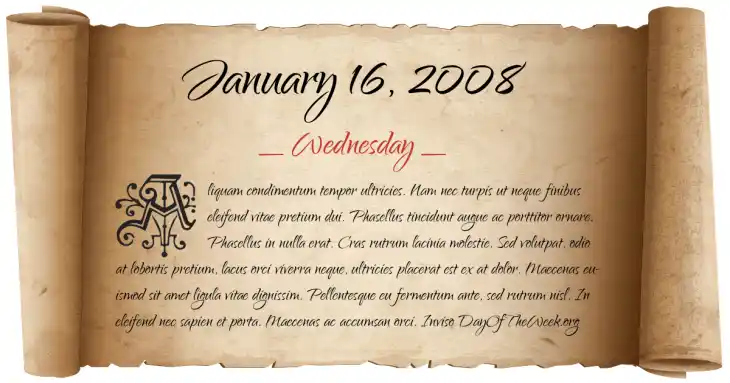 January 16, 2008
— Wednesday —
Aliquam condimentum tempor ultricies. Nam nec turpis ut neque finibus
eleifend vitae pretium dui. Phasellus tincidunt augue ac porttitor ornare.
Phasellus in nulla erat. Cras rutrum lacinia molestie. Sed volutpat, odio
at lobortis pretium, lacus orci viverra neque, ultricies placerat est ex at dolor. Maecenas eu-
ismod sit amet ligula vitae dignissim. Pellentesque eu fermentum ante, sed rutrum nisl. In
eleifend nec sapien et porta. Maecenas ac accumsan orci. Inviso DayOfTheWeek.org